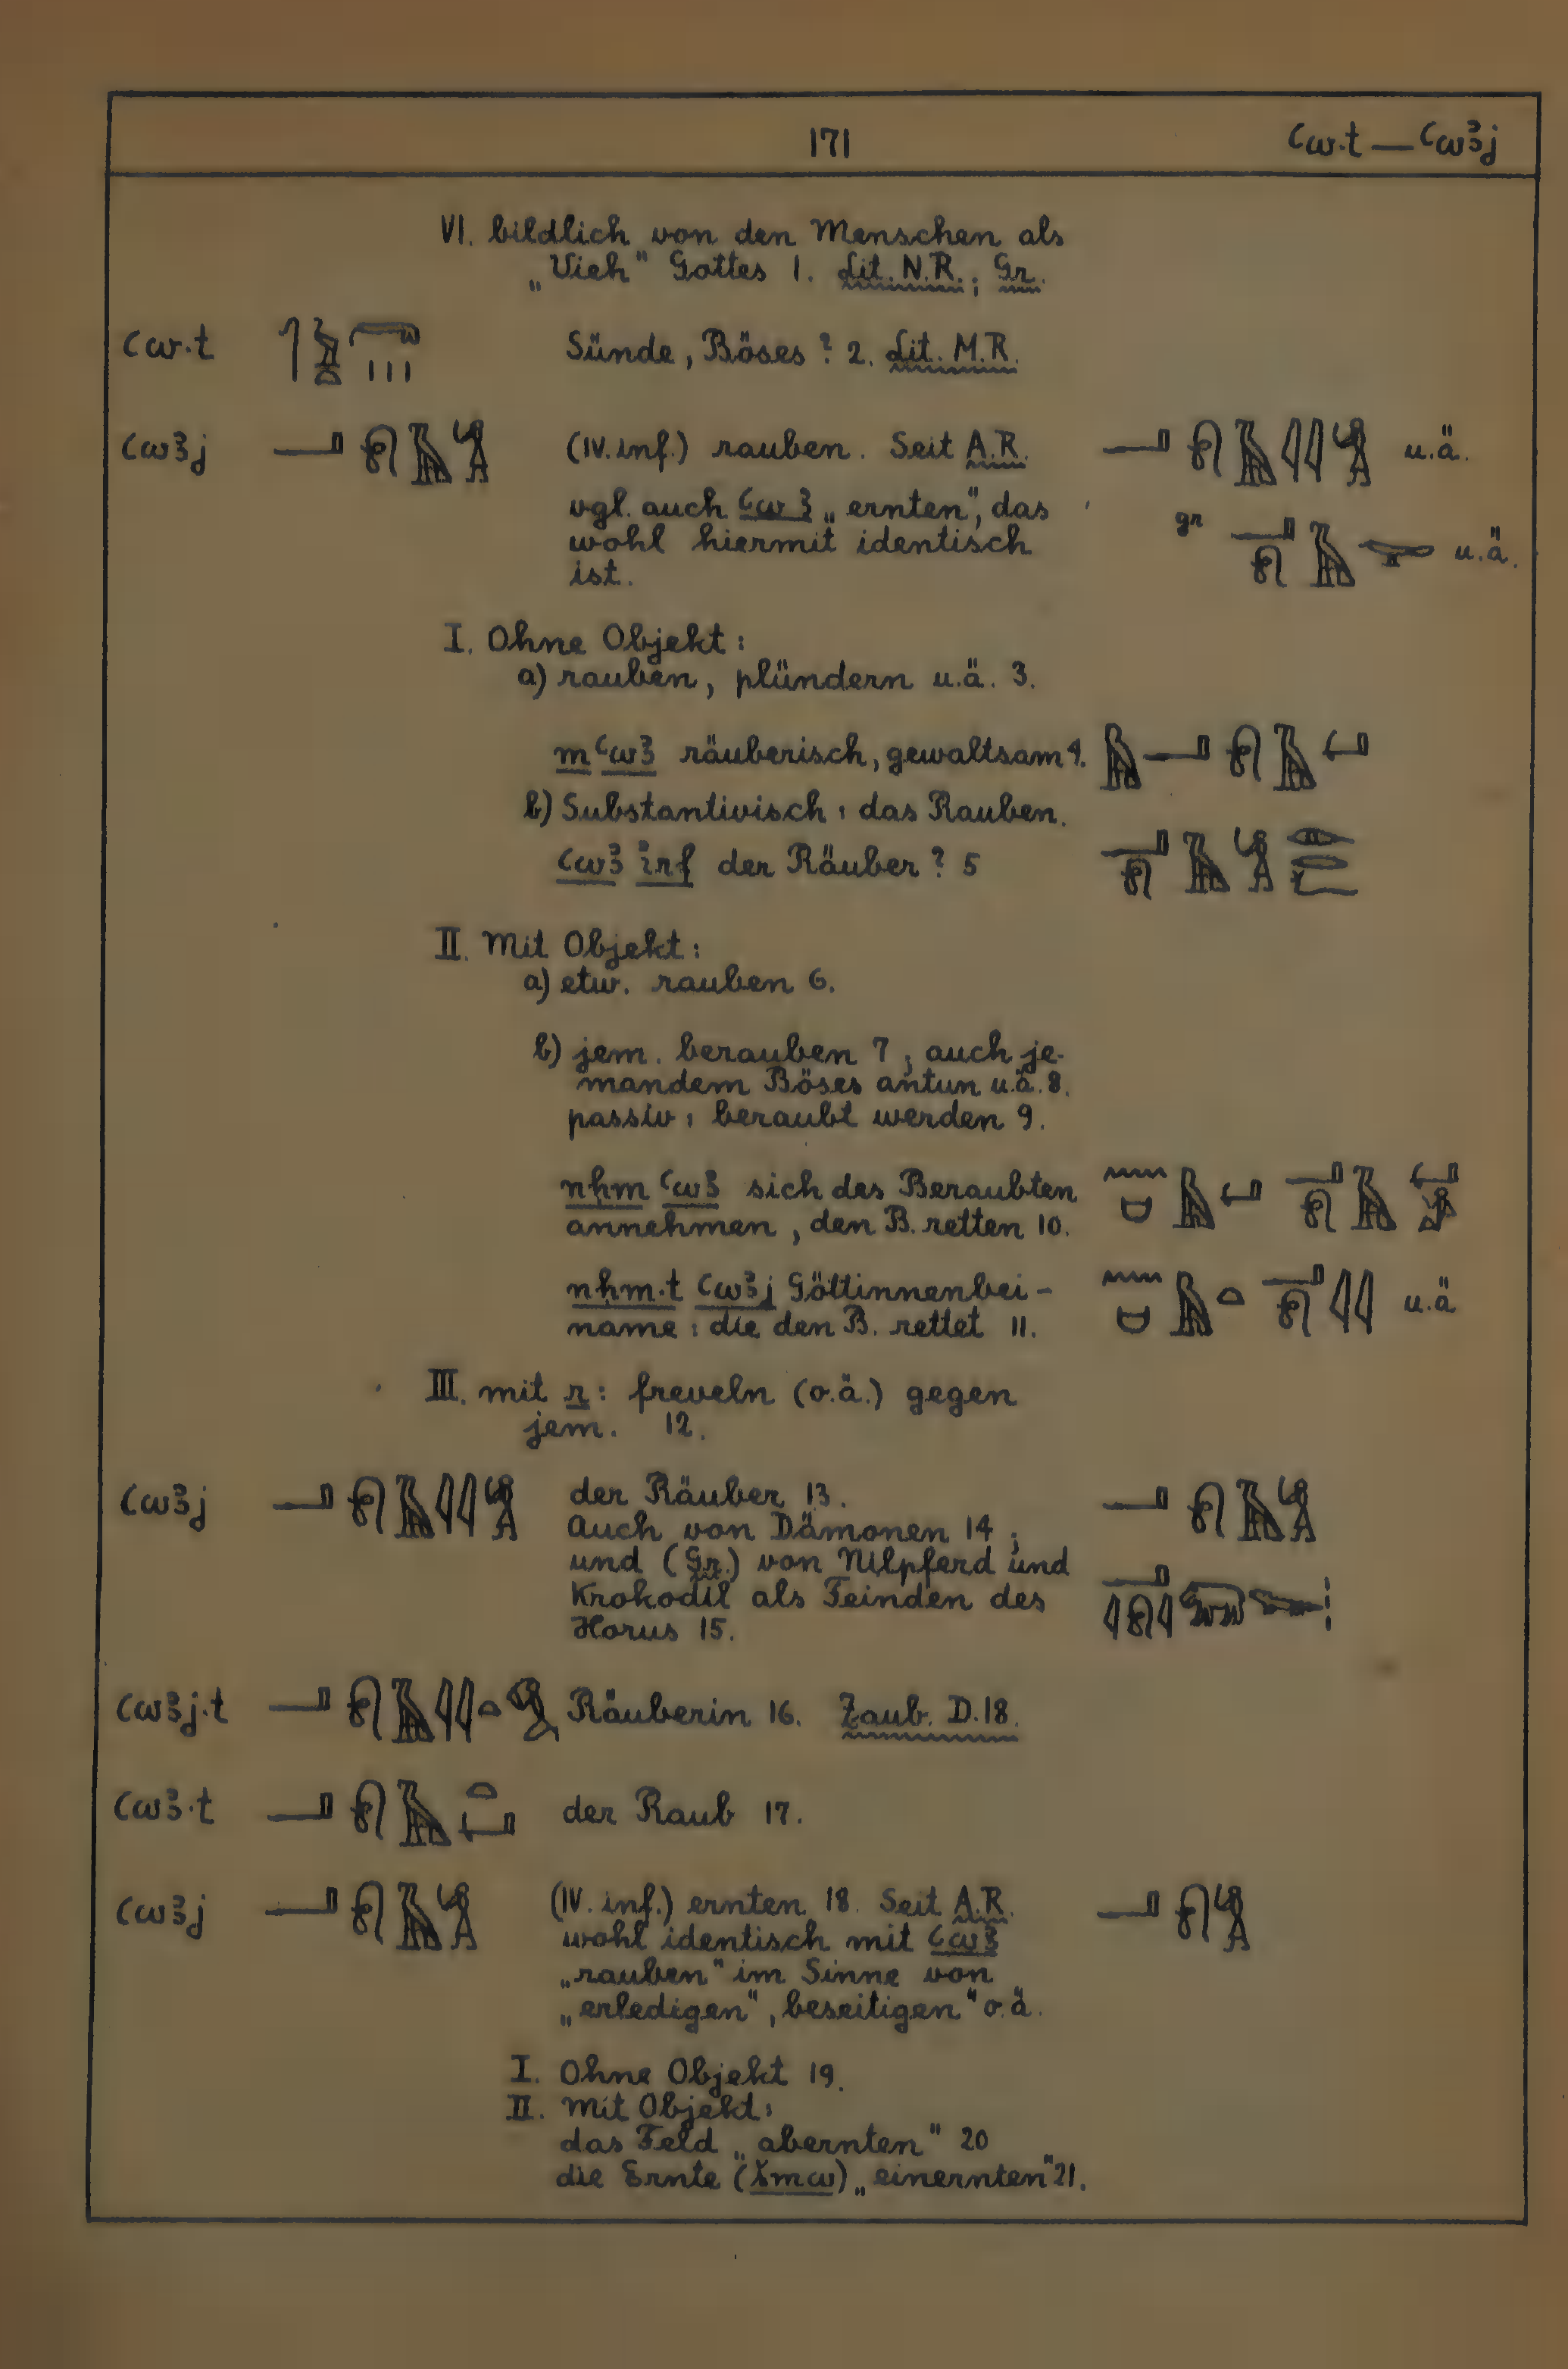 171
ꜥw.t — ꜥwꜣj
VI. bildlich von den Menschen als
„Vieh“ Gottes 1. Lit. N.R.; Gr.
ꜥw.t Sünde, Böses? 2. Lit. M.R.
ꜥwꜣj (IV. inf.) rauben. Seit A.R. u.ä.
vgl. auch ꜥwꜣ „ernten“, das
wohl hiermit identisch gr u.ä.
ist.
I. Ohne Objekt:
a) rauben, plündern u.ä. 3.
m ꜥwꜣ räuberisch, gewaltsam 4.
b) Substantivisch: das Rauben.
ꜥwꜣ irf der Räuber? 5
II. Mit Objekt:
a) etw. rauben 6.
b) jem. berauben 7; auch je-
mandem Böses antun u.ä. 8.
passiv: beraubt werden 9.
nḥm ꜥwꜣ sich des Beraubten
annehmen, den B. retten 10.
nḥm.t ꜥwꜣj Göttinnenbei-
name: die den B. rettet 11. u.ä
III. mit r: freveln (o.ä.) gegen
jem. 12.
ꜥwꜣj der Räuber 13.
Auch von Dämonen 14;
und (Gr.) von Nilpferd und
Krokodil als Feinden des
Horus 15.
ꜥwꜣj.t Räuberin 16. Zaub. D.18.
ꜥwꜣ.t der Raub 17.
ꜥwꜣj (IV. inf.) ernten 18. Seit A.R.
wohl identisch mit ꜥwꜣ
„rauben“ im Sinne von
„erledigen“, beseitigen“ o.ä.
I. Ohne Objekt 19.
II. Mit Objekt:
das Feld „abernten“ 20
die Ernte (šmw) „einernten“ 21.